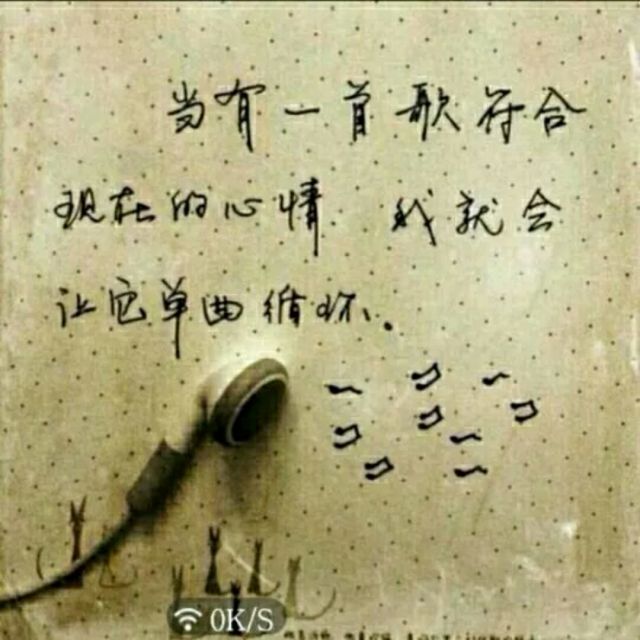 当有一首歌符合
现在的心情 我就会
让它单曲循环。
0K/S